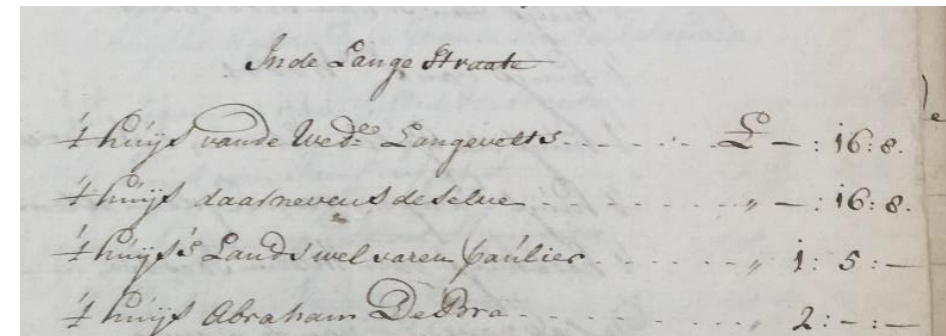 Inde Lange Straate
't huijs vande Wede. Langevelts - - - - : - . £ - : 16 : 8.
't huijs daarnevens deselve - - - - - - - - „ - : 16 : 8.
't huijs 's Lands wel varen Paulier - - - - - - „ 1 : 5 : -
't huijs Abraham De Bra - - - - - - - - „ 2 : - : -